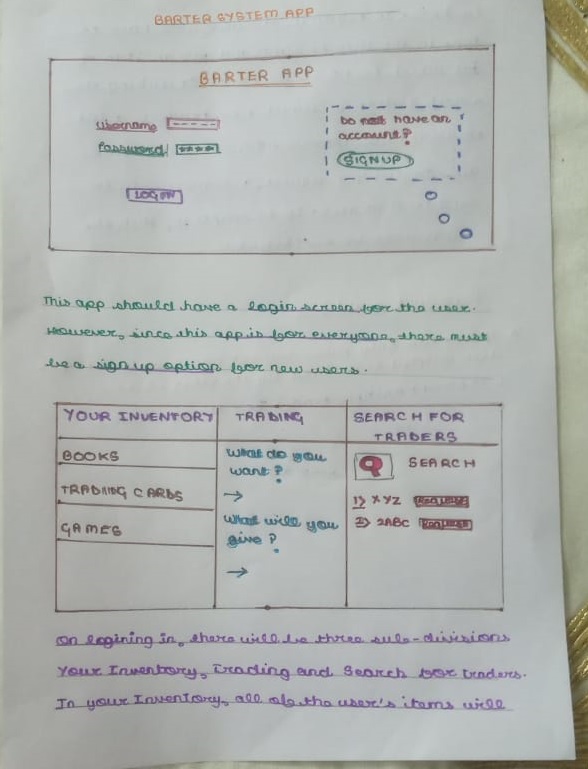 BARTER SYSTEM APP
BARTER APP
Username -----
Password: ****
LOGIN
Do not have an
account?
SIGNUP
This app should have a login screen for the user.
However, since this app is for everyone, there must
be a sign up option for new users.
YOUR INVENTORY
BOOKS
TRADING CARDS
GAMES
TRADING
What do you
want?
→
What will you
give?
→
SEARCH FOR
TRADERS
SEARCH
1) XYZ REQUEST
2) 2ABC REQUEST
On logining in, there will be three sub-divisions
Your Inventory, Trading and Search for traders.
In your Inventory, all of the user's items will